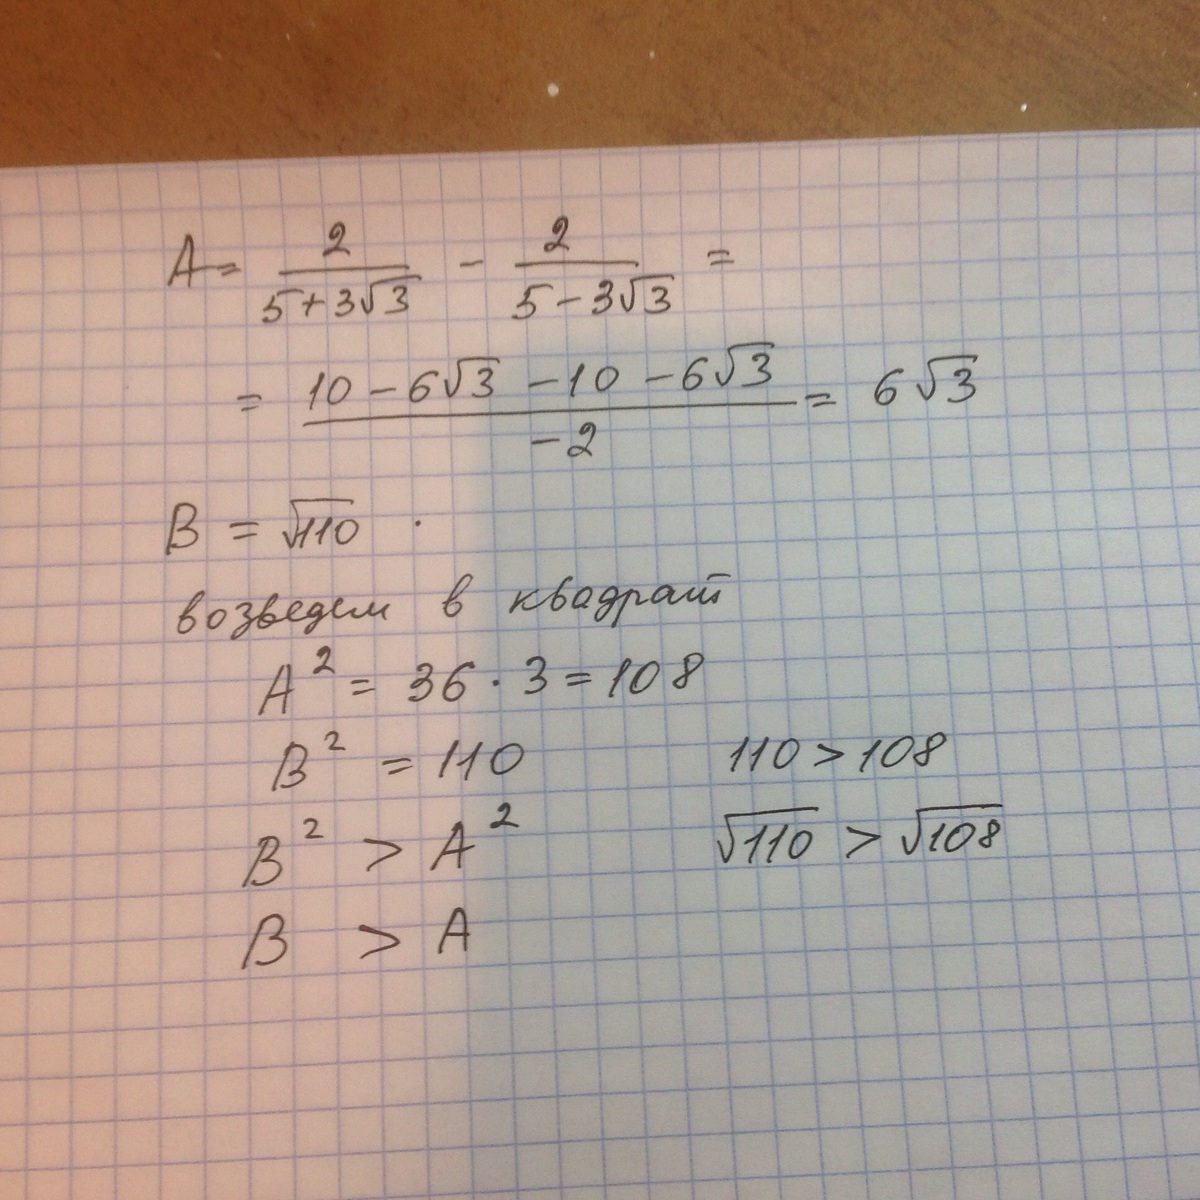 A = 2/(5+3√3) - 2/(5-3√3) =
= (10-6√3-10-6√3)/(-2) = 6√3
B = √110 .
возведем в квадрат
A² = 36·3=108
B² = 110
110>108
B² > A²
√110 > √108
B > A